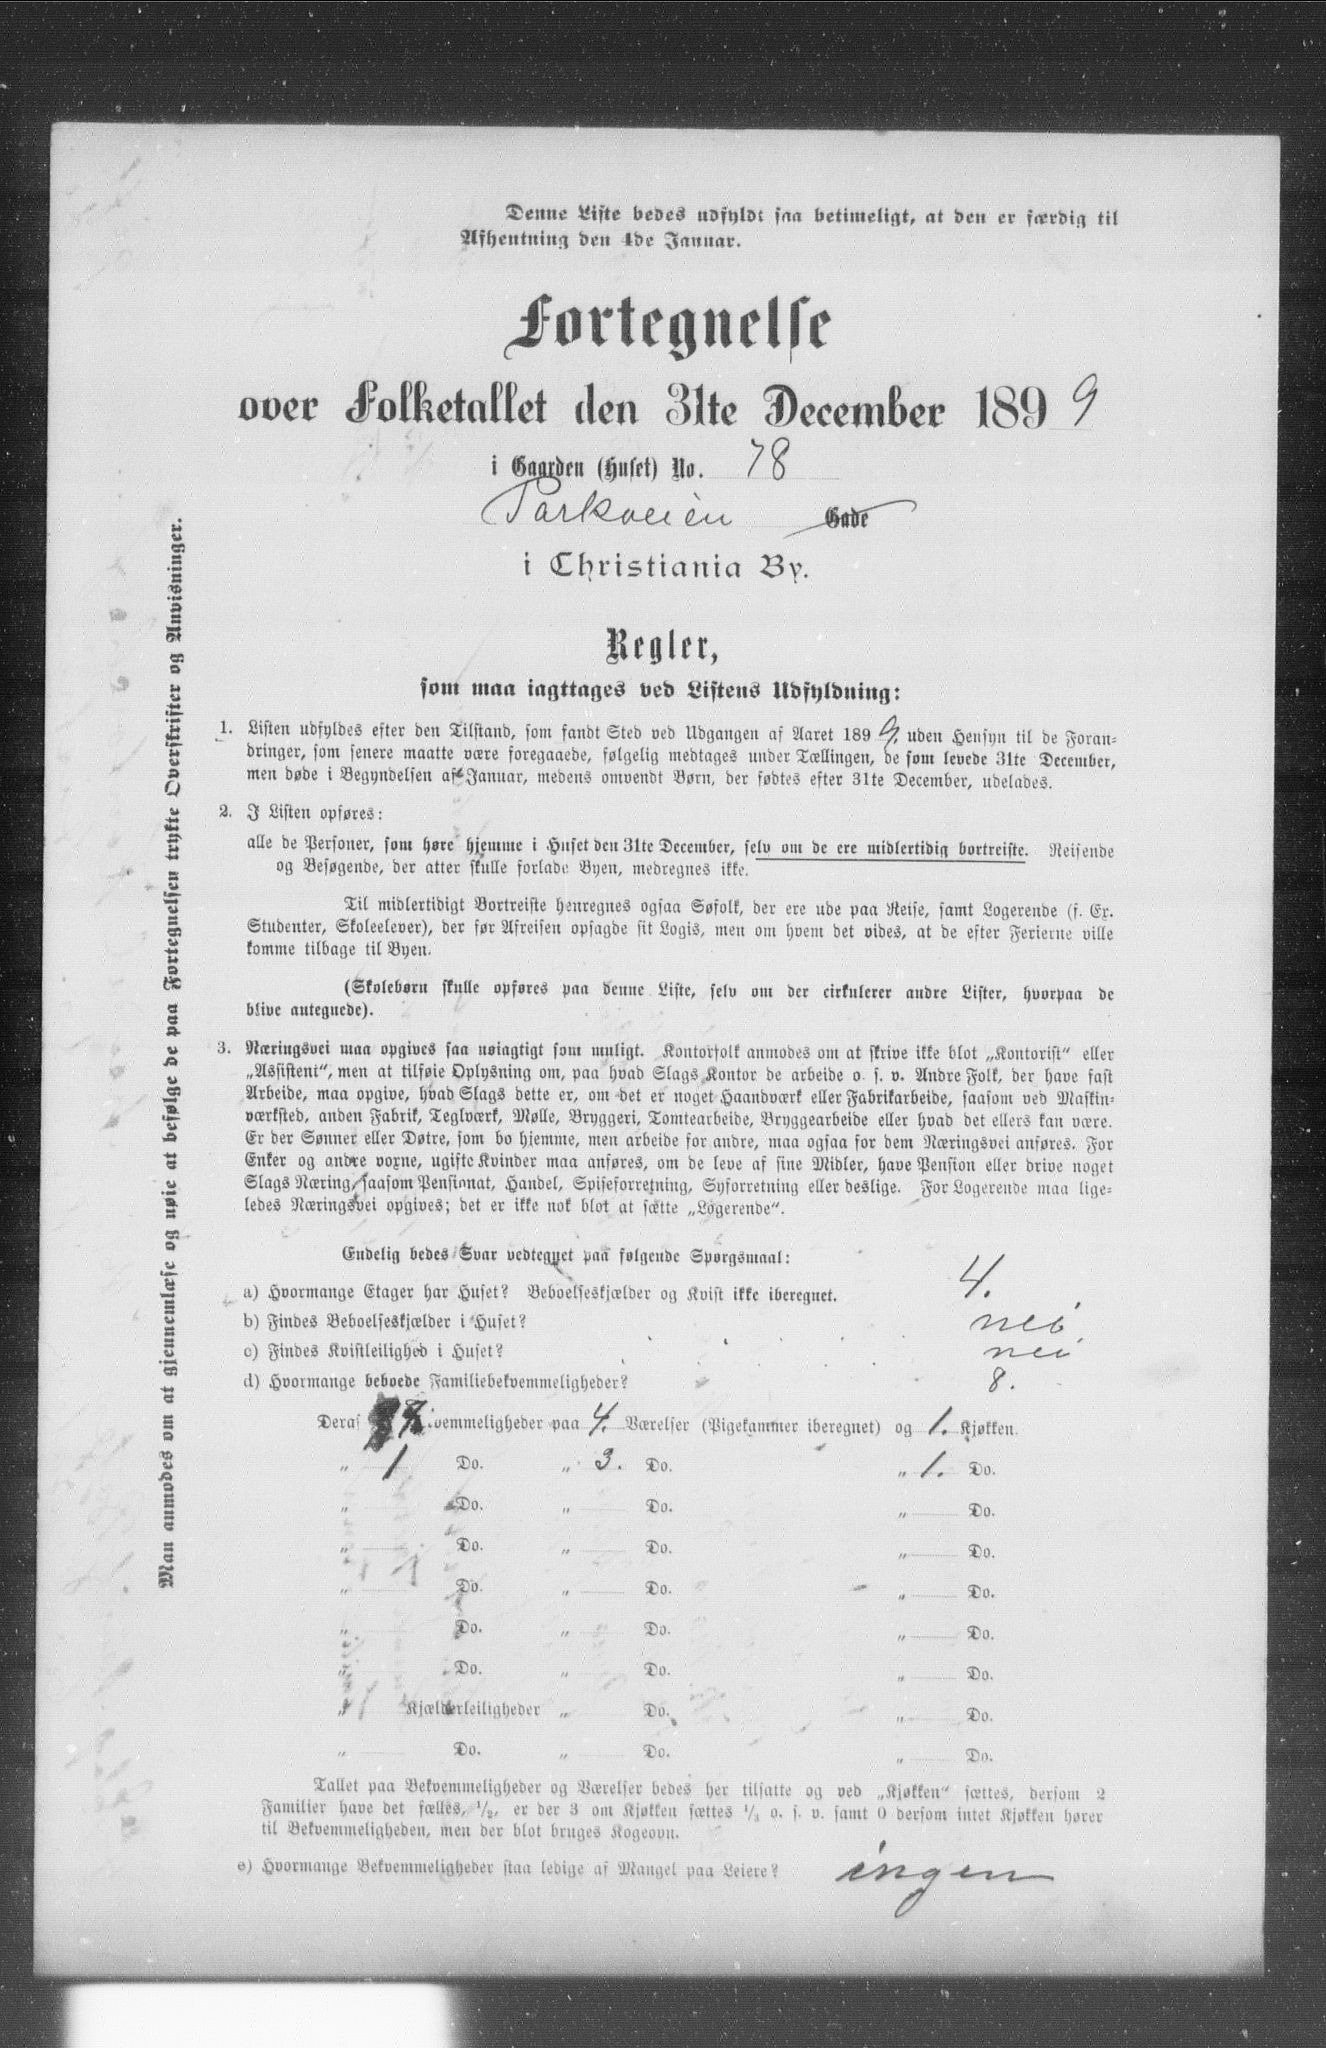 Denne Liste bedes udfyldt saa betimeligt, at den er færdig til
Afhentning den 4de Januar.
Fortegnelse
over Folketallet den 31te December 1899
i Gaarden (Huset) No. 78
Parkveien Gade
i Christiania By.
Regler,
som maa iagttages ved Listens Udfyldning:
1. Listen udfyldes efter den Tilstand, som fandt Sted ved Udgangen af Aaret 1899, uden Hensyn til de Foran-
dringer, som senere maatte være foregaaede, følgelig medtages under Tællingen, de som levede 31te December,
men døde i Begyndelsen af Januar, medens omvendt Børn, der fødtes efter 31te December, udelades.
2. I Listen opføres:
alle de Personer, som høre hjemme i Huset den 31te December, selv om de ere midlertidig bortreiste. Reisende
og Besøgende, der atter skulle forlade Byen, medregnes ikke.
Til midlertidigt Bortreiste henregnes ogsaa Søfolk, der ere ude paa Reise, samt Logerende (f. Ex.
Studenter, Skoleelever), der før Afreisen opsagde sit Logis, men om hvem det vides, at de efter Ferierne ville
komme tilbage til Byen.
(Skolebørn skulle opføres paa denne Liste, selv om der cirkulerer andre Lister, hvorpaa de
blive antegnede).
3. Næringsvei maa opgives saa nøiagtigt som muligt. Kontorfolk anmodes om at skrive ikke blot „Kontorist“ eller
„Assistent“, men at tilføie Oplysning om, paa hvad Slags Kontor de arbeide o. s. v. Andre Folk, der have fast
Arbeide, maa opgive, hvad Slags dette er, om det er noget Haandværk eller Fabrikarbeide, saasom ved Maskin-
værksted, anden Fabrik, Teglværk, Mølle, Bryggeri, Tomtearbeide, Bryggearbeide eller hvad det ellers kan være.
Er der Sønner eller Døtre, som bo hjemme, men arbeide for andre, maa ogsaa for dem Næringsvei anføres. For
Enker og andre voxne, ugifte Kvinder maa anføres, om de leve af sine Midler, have Pension eller drive noget
Slags Næring, saasom Pensionat, Handel, Spiseforretning, Syforretning eller deslige. For Logerende maa lige-
ledes Næringsvei opgives; det er ikke nok blot at sætte „Logerende“.
Endelig bedes Svar vedtegnet paa følgende Spørgsmaal:
a) Hvormange Etager har Huset? Beboelseskjælder og Kvist ikke iberegnet. 4.
b) Findes Beboelseskjælder i Huset? nei
c) Findes Kvistleilighed i Huset? nei
d) Hvormange beboede Familiebekvemmeligheder? 8.
Deraf vemmeligheder paa 4. Værelser (Pigekammer iberegnet) og 1. Kjøkken.
„ 1 Do. „ 3. Do. „ 1. Do.
„ Do. „ Do. „ Do.
„ Do. „ Do. „ Do.
„ Do. „ Do. „ Do.
„ Do. „ Do. „ Do.
„ Do. „ Do. „ Do.
„ Kjælderleiligheder „ Do. „ Do.
„ Do. „ Do. „ Do.
Tallet paa Bekvemmeligheder og Værelser bedes her tilsatte og ved „Kjøkken“ sættes, dersom 2
Familier have det fælles, 1/2, er der 3 om Kjøkken sættes 1/3 o. s. v. samt 0 dersom intet Kjøkken hører
til Bekvemmeligheden, men der blot bruges Kogeovn.
e) Hvormange Bekvemmeligheder staa ledige af Mangel paa Leiere? ingen
Man anmodes om at gjennemlæse og nøie at befølge de paa Fortegnelsen trykte Overskrifter og Anvisninger.